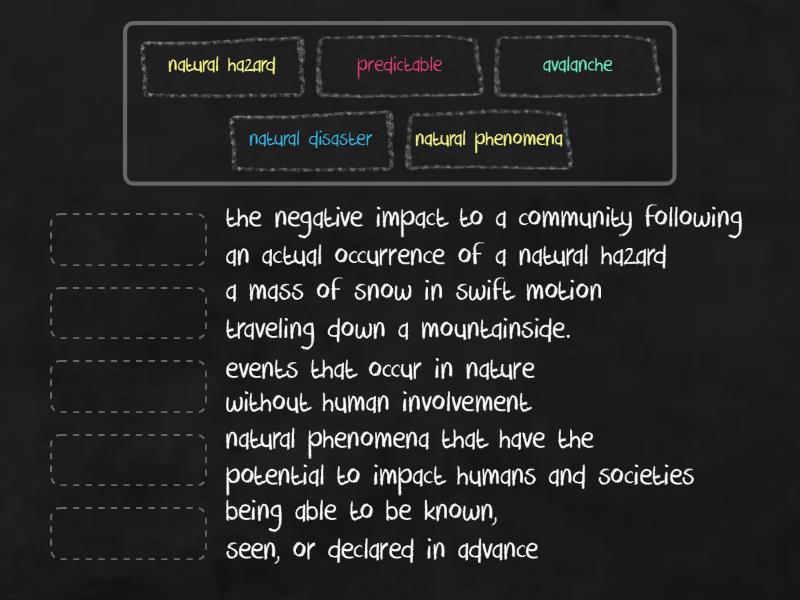 natural hazard predictable avalanche
natural disaster natural phenomena
the negative impact to a community following
an actual occurrence of a natural hazard
a mass of snow in swift motion
traveling down a mountainside.
events that occur in nature
without human involvement
natural phenomena that have the
potential to impact humans and societies
being able to be known,
seen, or declared in advance